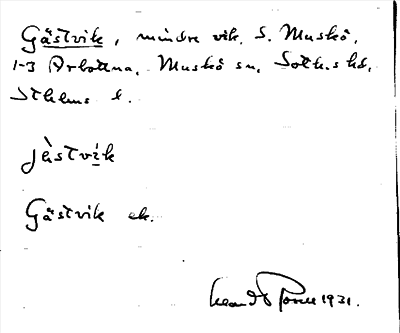 Gästvik, mindre vik, S. Muskö,
1-3 Arbottna, Muskö sn, Soth.s hd,
Sthlms l.
jästvik
Gästvik ek.
1931.